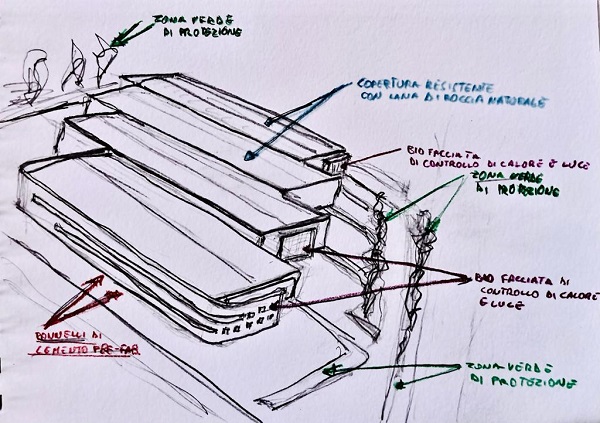 ZONA VERDE
DI PROTEZIONE
COPERTURA RESISTENTE
CON LANA DI ROCCIA NATURALE
BIO FACCIATA
DI CONTROLLO DI CALORE E LUCE
ZONA VERDE
DI PROTEZIONE
BIO FACCIATA DI
CONTROLLO DI CALORE
E LUCE
PANNELLI DI
CEMENTO PRE-FAB
ZONA VERDE
DI PROTEZIONE